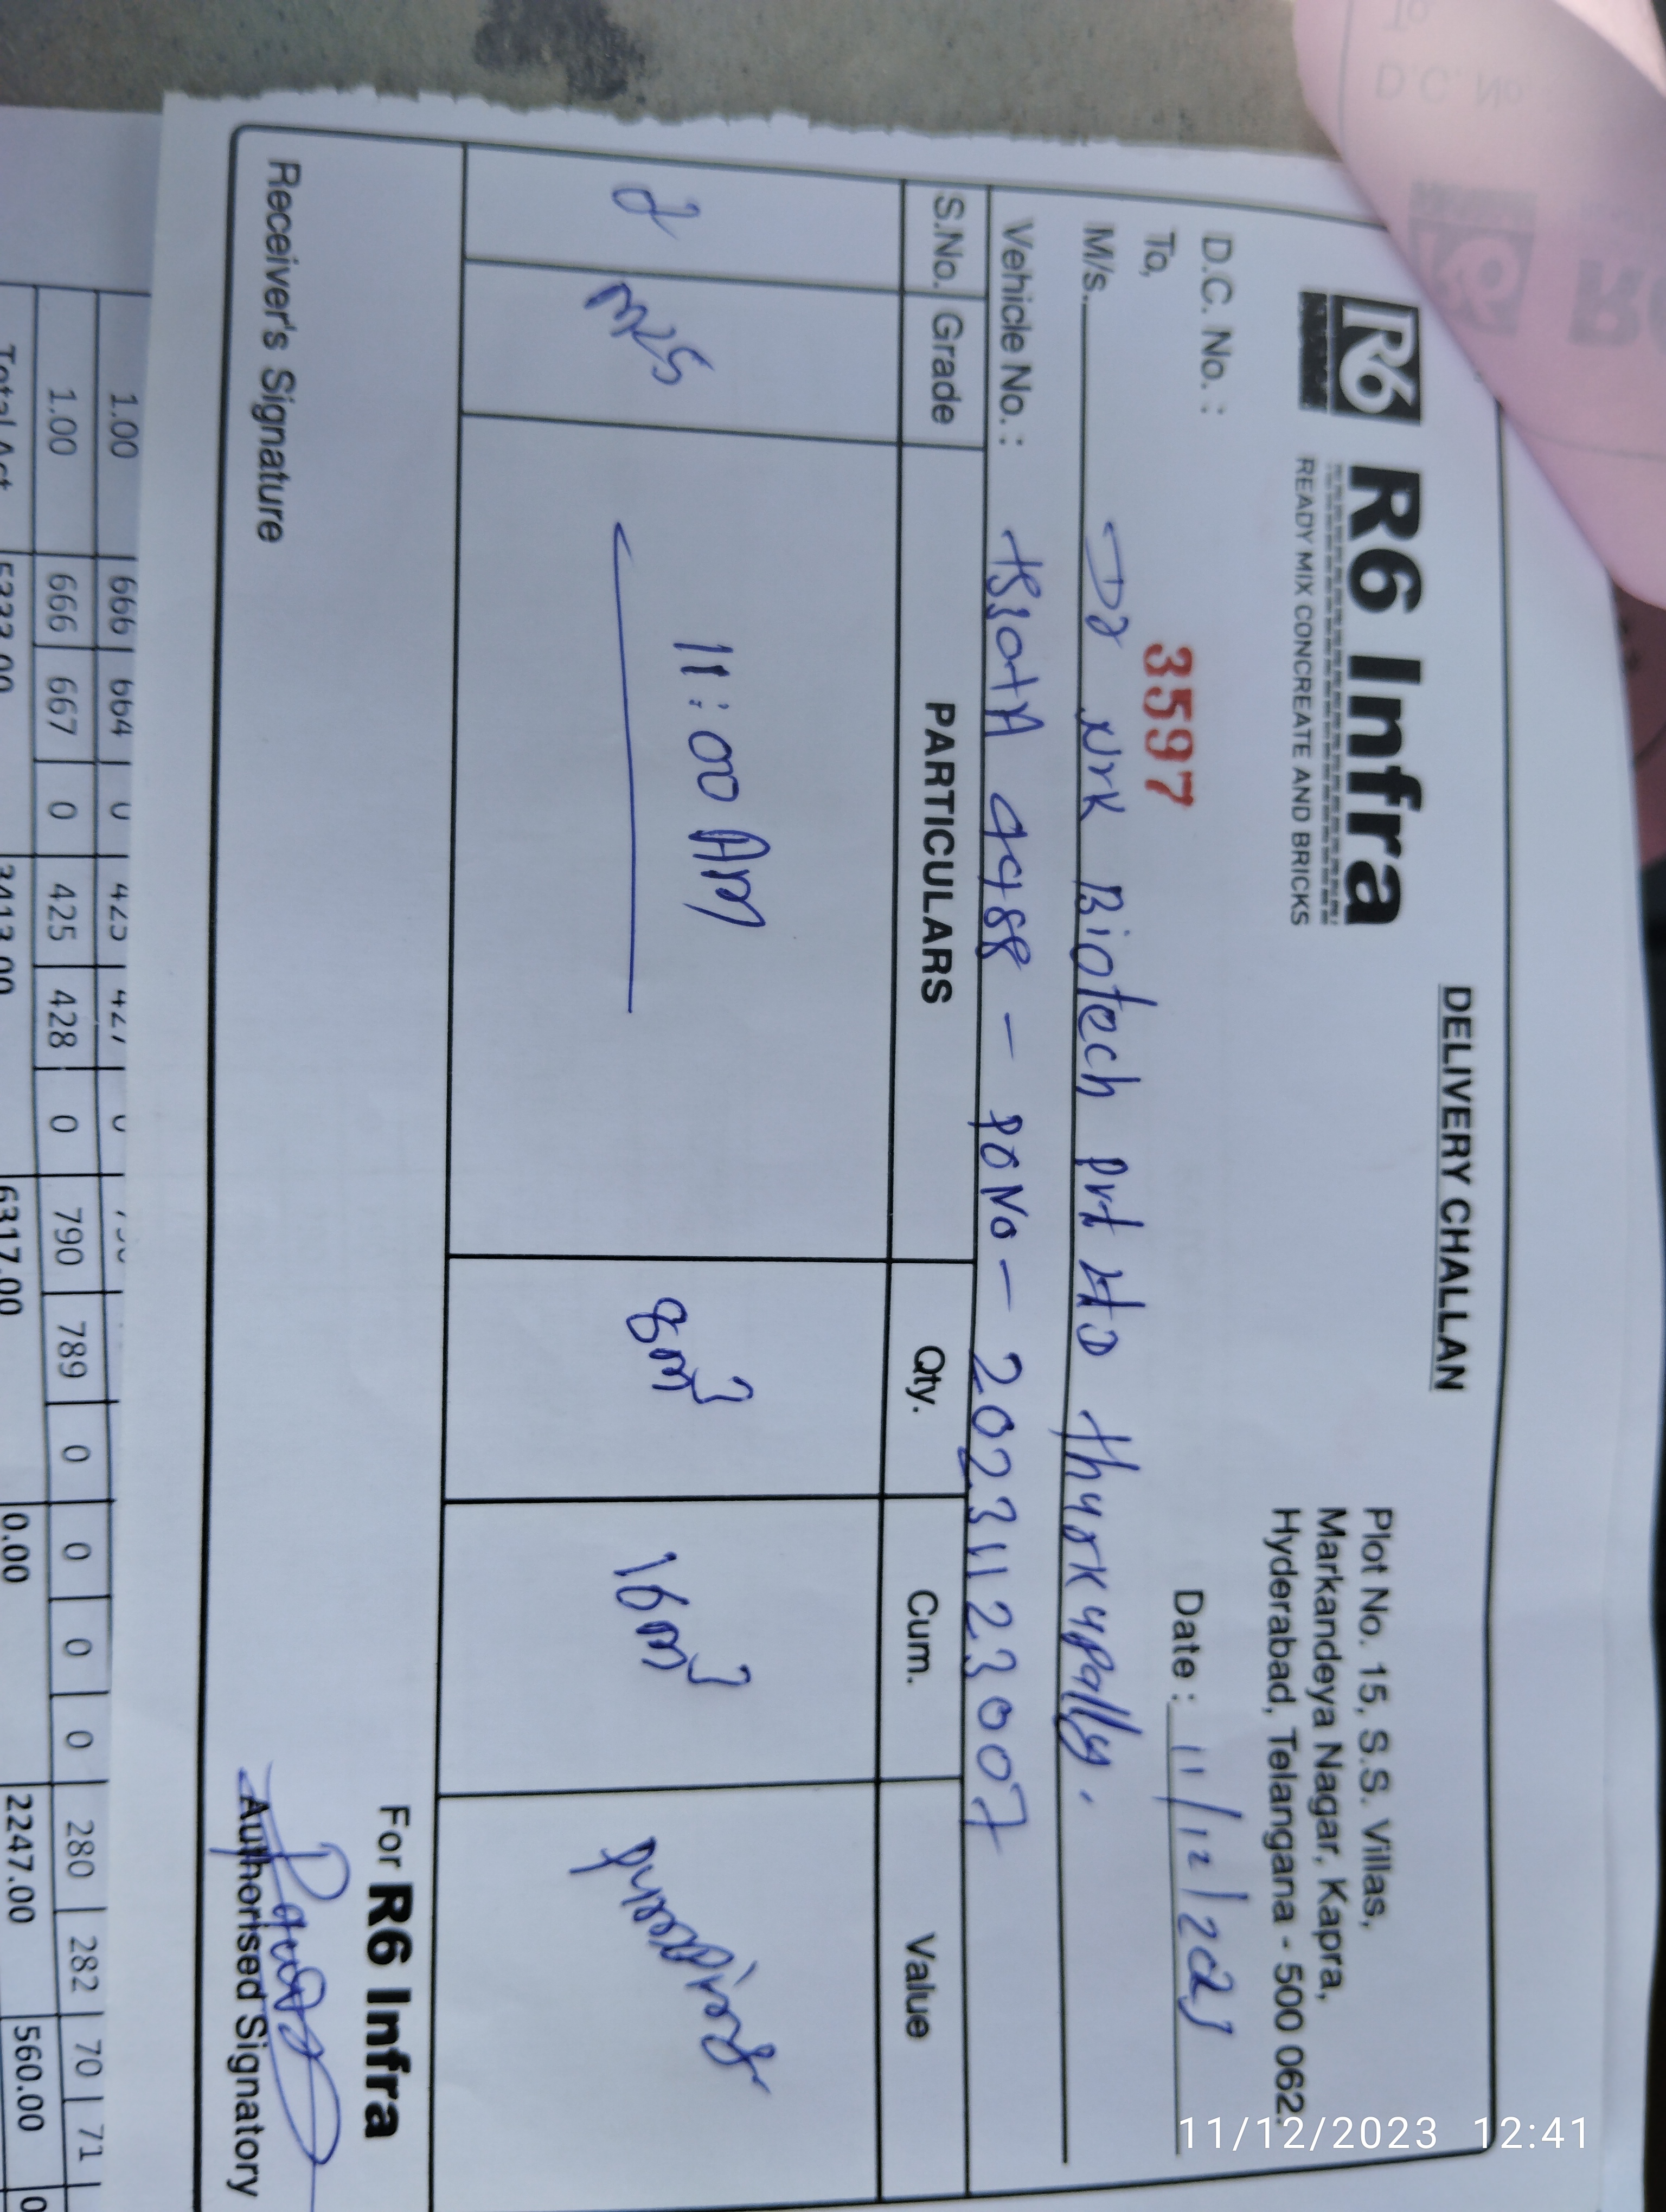 DELIVERY CHALLAN
R6 R6 Infra
READY MIX CONCREATE AND BRICKS
Plot No. 15, S.S. Villas,
Markandeya Nagar, Kapra,
Hyderabad, Telangana - 500 062.
D.C. No. : 3597
Date : 11/12/2023
To,
M/s. Dr Nrk Biotech pvt Ltd thurkupally.
Vehicle No. : 4488 - PONO - 20231123007
S.No. Grade PARTICULARS Qty. Cum. Value
2 M25 11:00 AM 8m3 16m3
For R6 Infra
Receiver's Signature Authorised Signatory
1.00 666 664 0 425 427 0
1.00 666 667 0 425 428 0 790 789 0 0 0 0 280 282 70 71
6317.00 0.00 2247.00 560.00
D.C. No
To
11/12/2023 12:41